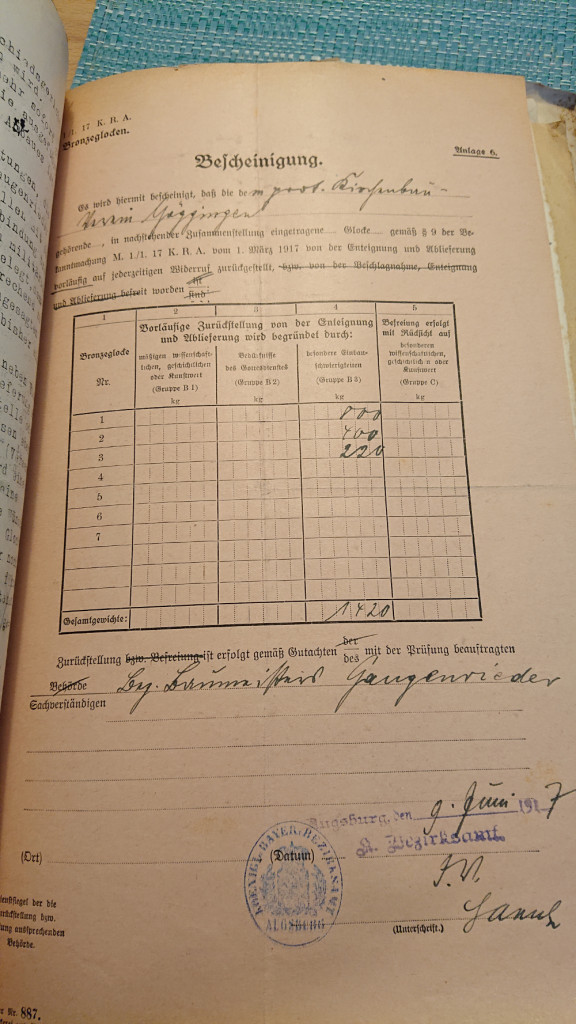 1/1. 17 K. R. A.
Bronzeglocken.
Anlage 6.
Bescheinigung.
Es wird hiermit bescheinigt, daß die dem prot. Kirchenbau-
Verein Göggingen
gehörende, in nachstehender Zusammenstellung eingetragene Glocke gemäß § 9 der Be-
kanntmachung M. 1./1. 17 K. R. A. vom 1. März 1917 von der Enteignung und Ablieferung
vorläufig auf jederzeitigen Widerruf zurückgestellt, bzw. von der Beschlagnahme, Enteignung
und Ablieferung befreit worden ist
sind.
1 2 3 4 5
Bronzeglocke
Nr.
Vorläufige Zurückstellung von der Enteignung
und Ablieferung wird begründet durch:
mäßigen wissenschaft-
lichen, geschichtlichen
oder Kunstwert
(Gruppe B 1)
kg
Bedürfnisse
des Gottesdienstes
(Gruppe B 2)
kg
besondere Einbau-
schwierigkeiten
(Gruppe B 3)
kg
Befreiung erfolgt
mit Rücksicht auf
besonderen
wissenschaftlichen,
geschichtlichen oder
Kunstwert
(Gruppe C)
kg
1 800
2 400
3 220
4
5
6
7
Gesamtgewichte: 1420
Zurückstellung bzw. Befreiung ist erfolgt gemäß Gutachten der
des mit der Prüfung beauftragten
Behörde
Sachverständigen
Bez. Baumeisters Gangenrieder
Augsburg, den 9. Juni 1917
K. Bezirksamt.
(Ort) (Datum)
I.V.
KOENIGL. BAYER. BEZIRKSAMT
AUGSBURG
(Unterschrift.)
Dienstsiegel der die
Zurückstellung bzw.
aussprechenden
Behörde.
Nr. 887.